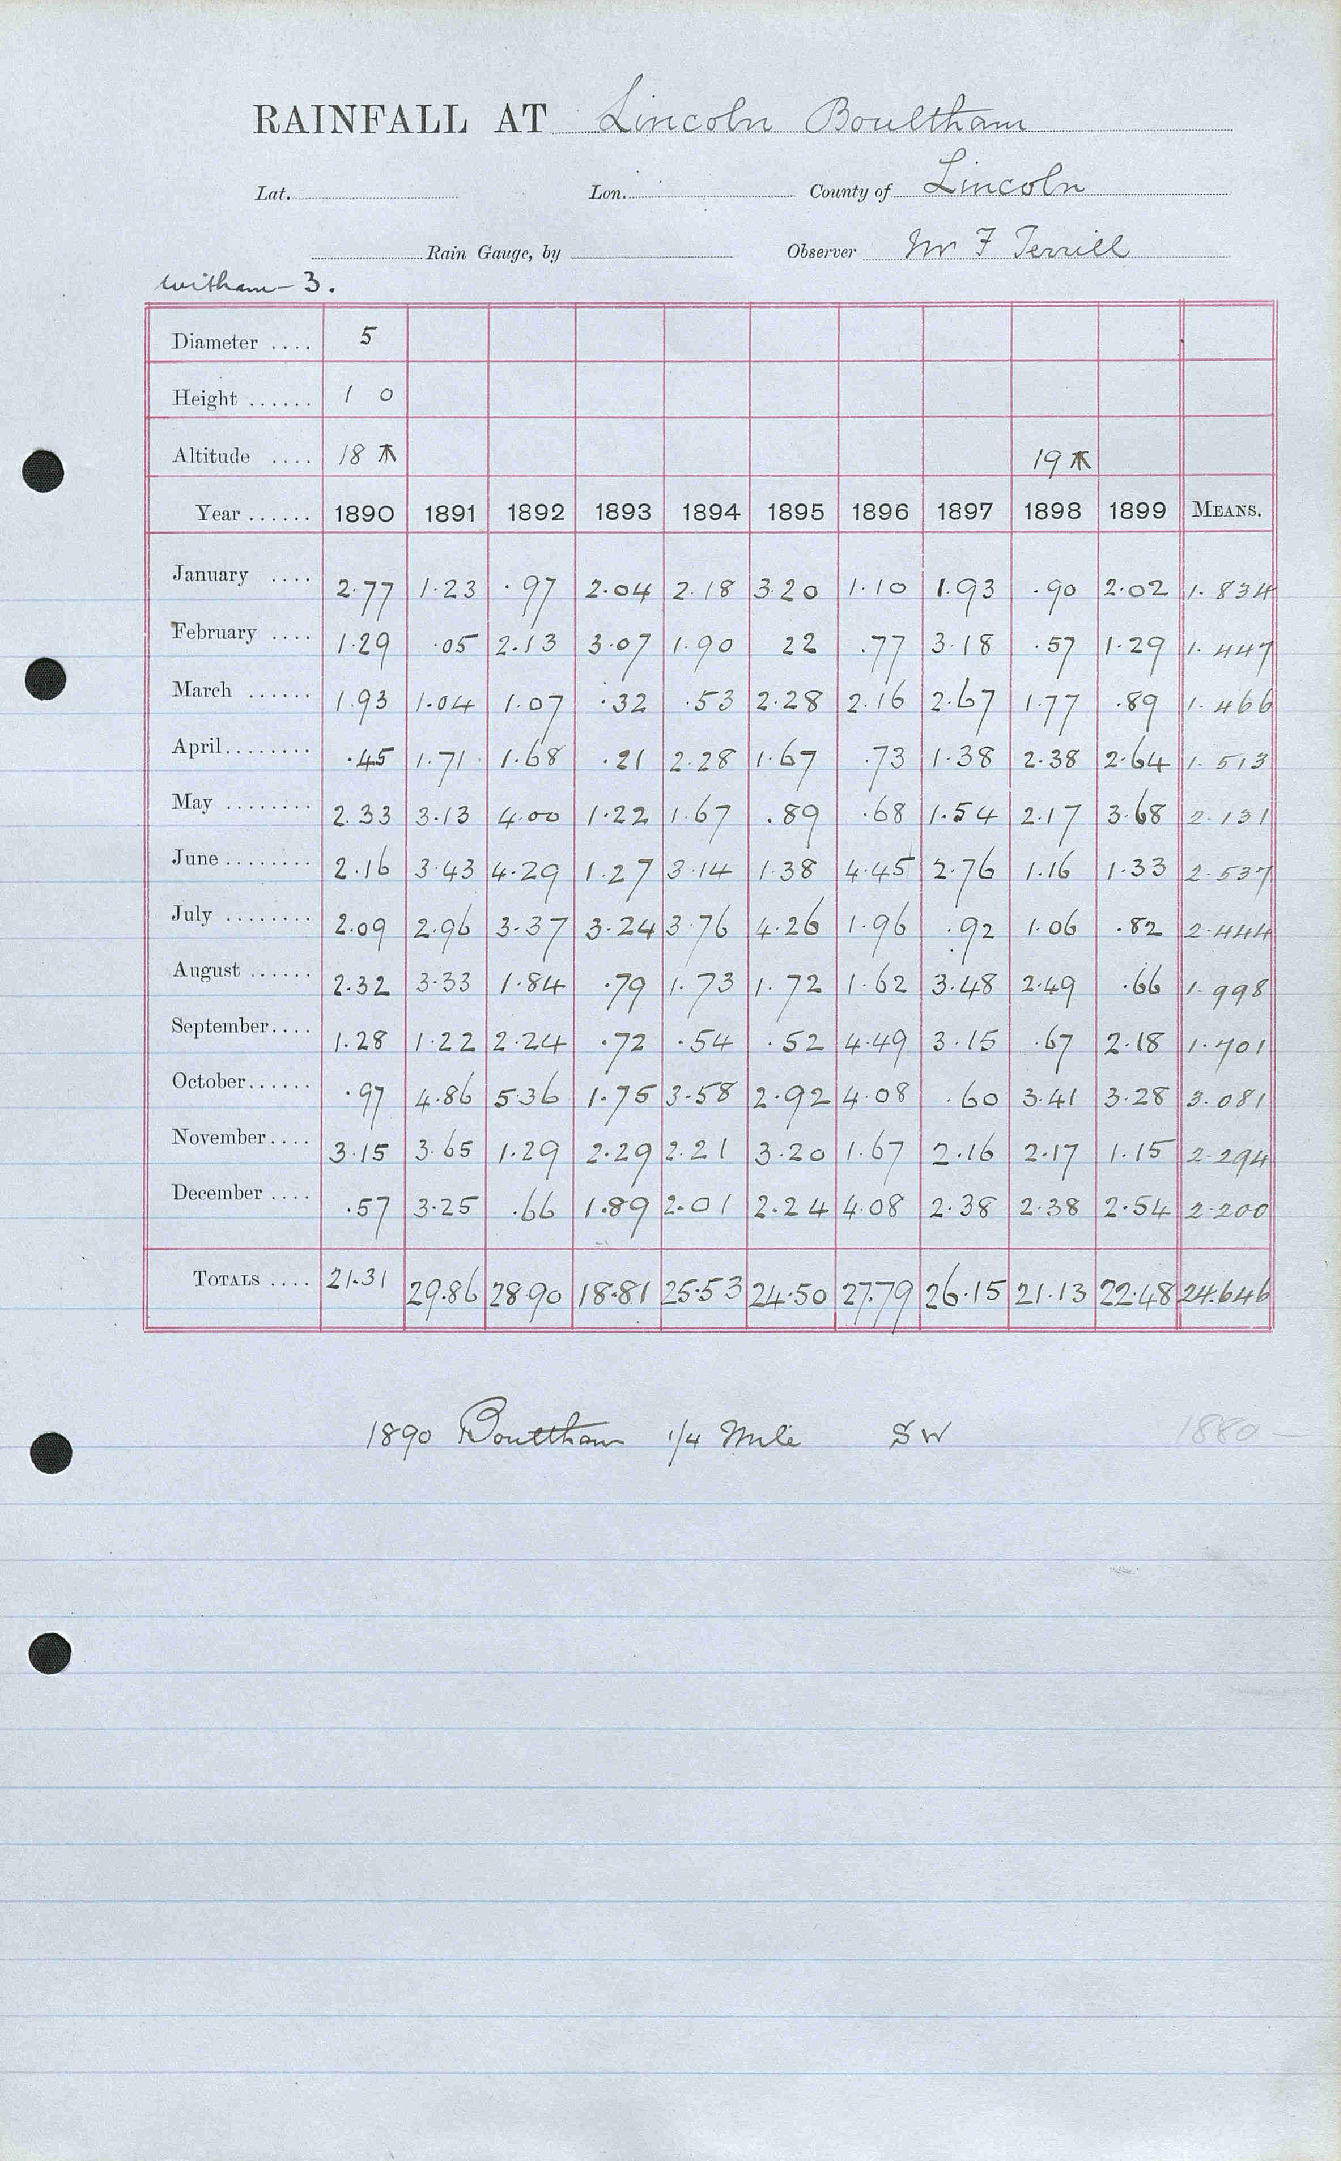 RAINFALL AT Lincoln Boultham
Lat. Lon. County of Lincoln
Rain Gauge, by Observer Mr F Terrill
Witham - 3.
Diameter .... 5
Height ...... 1 0
Altitude .... 18 ⚻ 19 ⚻
Year ...... 1890 1891 1892 1893 1894 1895 1896 1897 1898 1899 MEANS.
January .... 2.77 1.23 .97 2.04 2.18 3 20 1.10 1.93 .90 2.02 1.834
February .... 1.29 .05 2.13 3.07 1.90 22 .77 3.18 .57 1.29 1.447
March ...... 1.93 1.04 1.07 .32 .53 2.28 2.16 2.67 1.77 .89 1.466
April ........ .45 1.71 1.68 .21 2.28 1.67 .73 1.38 2.38 2.64 1.513
May ........ 2.33 3.13 4.00 1.22 1.67 .89 .68 1.54 2.17 3.68 2.131
June ........ 2.16 3.43 4.29 1.27 3.14 1.38 4.45 2.76 1.16 1.33 2.537
July ........ 2.09 2.96 3.37 3.24 3.76 4.26 1.96 .92 1.06 .82 2.444
August ...... 2.32 3.33 1.84 .79 1.73 1.72 1.62 3.48 2.49 .66 1.998
September .... 1.28 1.22 2.24 .72 .54 .52 4.49 3.15 .67 2.18 1.701
October ...... .97 4.86 5.36 1.75 3.58 2.92 4.08 .60 3.41 3.28 3.081
November .... 3.15 3.65 1.29 2.29 2.21 3.20 1.67 2.16 2.17 1.15 2.294
December .... .57 3.25 .66 1.89 2.01 2.24 4.08 2.38 2.38 2.54 2.200
TOTALS .... 21.31 29.86 28.90 18.81 25.53 24.50 27.79 26.15 21.13 22.48 24.646
1890 Boultham 1/4 Mile SW 1880